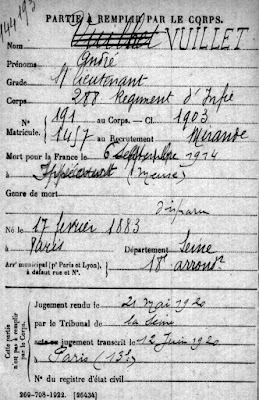 144193
PARTIE À REMPLIR PAR LE CORPS.
Nom VUILLET
Prénoms André
Grade Sr lieutenant
Corps 288 Régiment d'Infie
N° 191 au Corps. — Cl. 1903
Matricule. 1457 au Recrutement Mirande
Mort pour la France le 6 Septembre 1914
à Ippécourt (Meuse)
Genre de mort
disparu
Né le 17 février 1883
à Paris Département Seine
Arrt municipal (pr Paris et Lyon), à défaut rue et N°. 18e arrondt
Cette partie n'est pas à remplir par le Corps.
Jugement rendu le 21 Mai 1920
par le Tribunal de la Seine
acte ou jugement transcrit le 12 Juin 1920
à Paris (13e)
N° du registre d'état civil
269-708-1922. [26434]